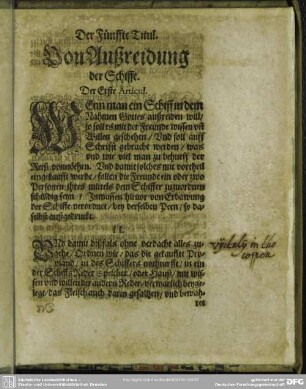 Der Fünffte Titul.
Von Außreidung
der Schiffe.
Der Erste Articul.
Wenn man ein Schiff in dem
Nahmen Gottes außreiden will/
so soll es mit der Freunde wissen und
Willen geschehen/ Und soll auff
Schrifft gebracht werden/ was
und wie viel man zu behueff der
Reiß vonnöhten. Und damit solches mit vortheil
eingekaufft werde/ sollen die Freunde ein oder zwo
Personen ihres mittels dem Schiffer zuzuordnen
schuldig seyn/ Inmassen hievor von Erbawung
der Schiffe verordnet/ bey derselben Peen/ so da-
selbst außgedruckt.
II.
Und damit dißfals ohne verdacht alles zu-
gehe/ Ordnen wir/ das die gekauffte Pro-
viand/ in des Schiffers nothurfft/ in ein
der Schiffs Reder Speicher/ oder Hauß/ mit wis-
sen und willen der andern Reder/ verwahrlich beyge-
lege/ das Fleisch auch darin gesaltzen/ und bewah-
ret